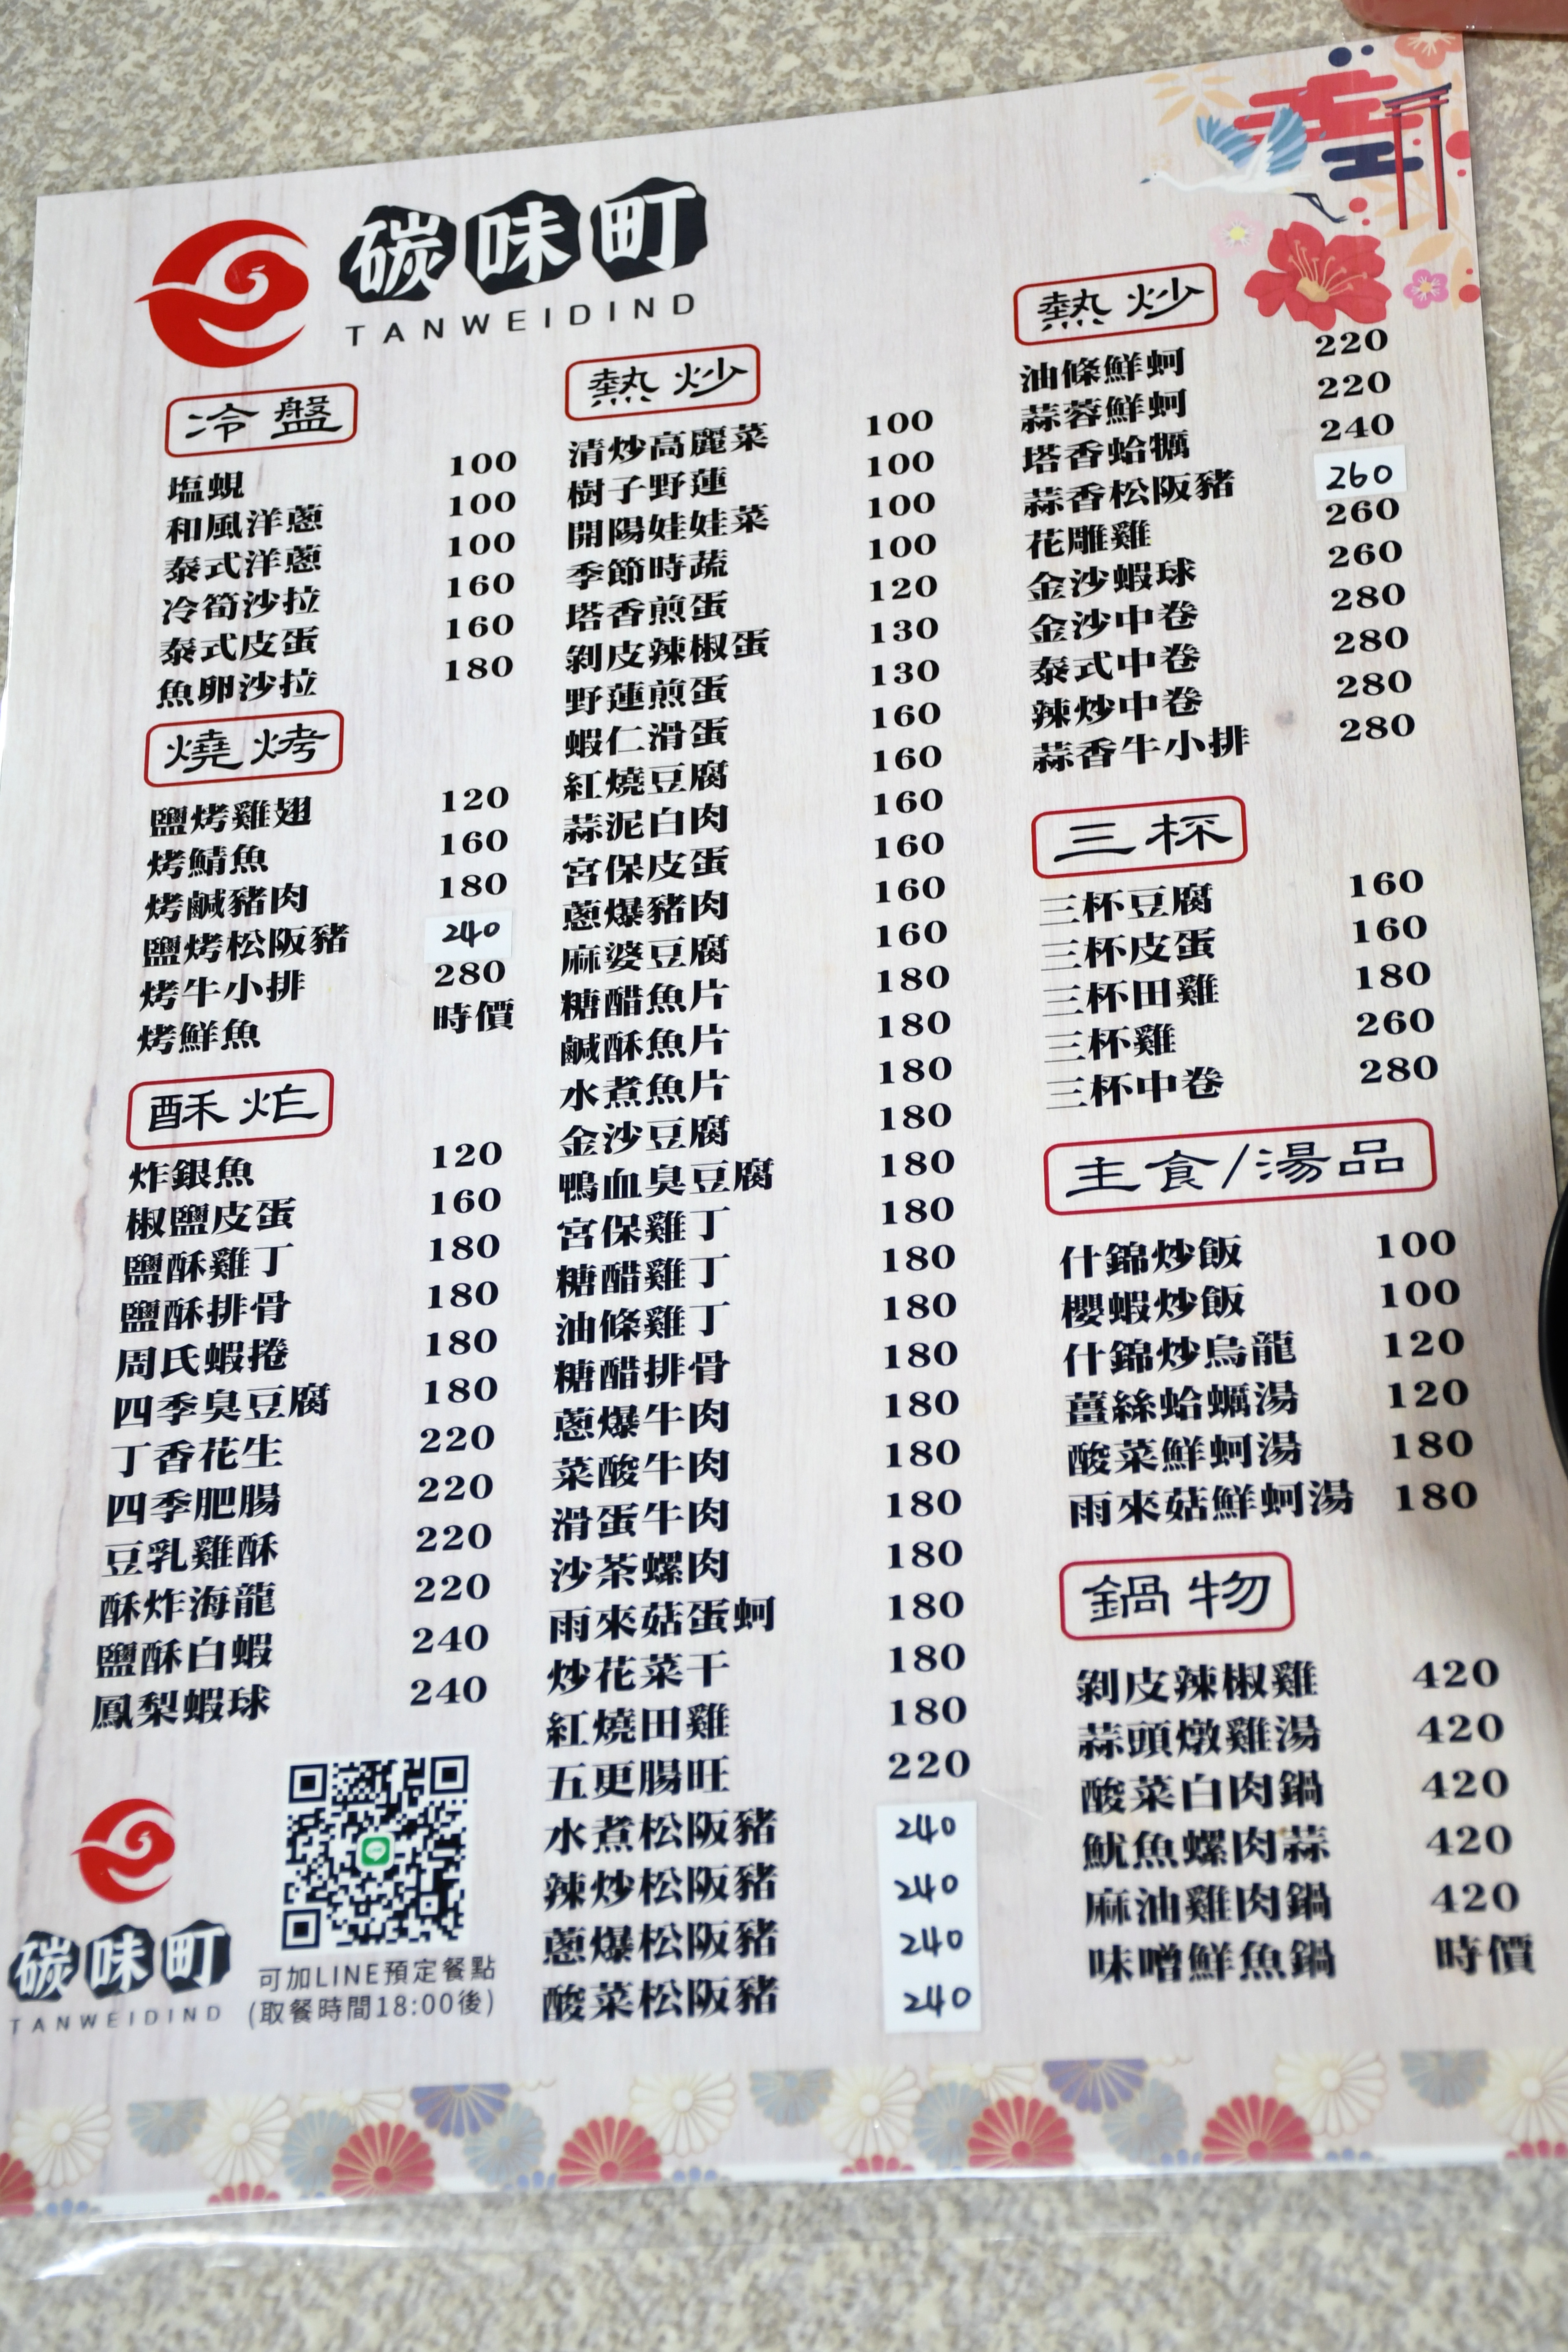 碳味町
TANWEIDIND
冷盤
塩蜆 100
和風洋蔥 100
泰式洋蔥 100
冷筍沙拉 160
泰式皮蛋 160
魚卵沙拉 180
燒烤
鹽烤雞翅 120
烤鯖魚 160
烤鹹豬肉 180
鹽烤松阪豬 240
烤牛小排 280
烤鮮魚 時價
酥炸
炸銀魚 120
椒鹽皮蛋 160
鹽酥雞丁 180
鹽酥排骨 180
周氏蝦捲 180
四季臭豆腐 180
丁香花生 220
四季肥腸 220
豆乳雞酥 220
酥炸海龍 220
鹽酥白蝦 240
鳳梨蝦球 240
碳味町
TANWEIDIND
可加LINE預定餐點
(取餐時間18:00後)
熱炒
清炒高麗菜 100
樹子野蓮 100
開陽娃娃菜 100
季節時蔬 100
塔香煎蛋 120
剝皮辣椒蛋 130
野蓮煎蛋 130
蝦仁滑蛋 160
紅燒豆腐 160
蒜泥白肉 160
宮保皮蛋 160
蔥爆豬肉 160
麻婆豆腐 160
糖醋魚片 180
鹹酥魚片 180
水煮魚片 180
金沙豆腐 180
鴨血臭豆腐 180
宮保雞丁 180
糖醋雞丁 180
油條雞丁 180
糖醋排骨 180
蔥爆牛肉 180
菜酸牛肉 180
滑蛋牛肉 180
沙茶螺肉 180
雨來菇蛋蚵 180
炒花菜干 180
紅燒田雞 180
五更腸旺 220
水煮松阪豬 240
辣炒松阪豬 240
蔥爆松阪豬 240
酸菜松阪豬 240
熱炒
油條鮮蚵 220
蒜蓉鮮蚵 220
塔香蛤蠣 240
蒜香松阪豬 260
花雕雞 260
金沙蝦球 260
金沙中卷 280
泰式中卷 280
辣炒中卷 280
蒜香牛小排 280
三杯
三杯豆腐 160
三杯皮蛋 160
三杯田雞 180
三杯雞 260
三杯中卷 280
主食/湯品
什錦炒飯 100
櫻蝦炒飯 100
什錦炒烏龍 120
薑絲蛤蠣湯 120
酸菜鮮蚵湯 180
雨來菇鮮蚵湯 180
鍋物
剝皮辣椒雞 420
蒜頭燉雞湯 420
酸菜白肉鍋 420
魷魚螺肉蒜 420
麻油雞肉鍋 420
味噌鮮魚鍋 時價